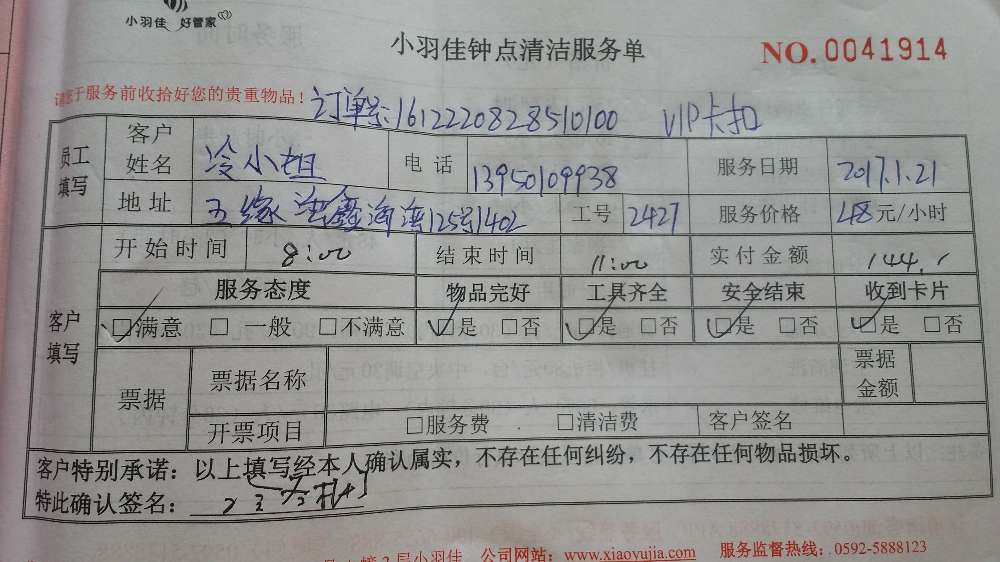 小羽佳 好管家
小羽佳钟点清洁服务单
NO. 0041914
请您于服务前收拾好您的贵重物品!
订单号:1612220828510100 VIP卡扣
员工填写
客户姓名 冷小姐 电话 13950109938 服务日期 2017.1.21
地址 五缘 鑫海湾125号1402 工号 2427 服务价格 48元/小时
客户填写
开始时间 8:00 结束时间 11:00 实付金额 144.
服务态度 物品完好 工具齐全 安全结束 收到卡片
☑满意 □一般 □不满意 ☑是 □否 ☑是 □否 ☑是 □否 ☑是 □否
票据 票据名称 票据金额
开票项目 □服务费 □清洁费 客户签名
客户特别承诺:以上填写经本人确认属实,不存在任何纠纷,不存在任何物品损坏。
特此确认签名:
层小羽佳 公司网站:www.xiaoyujia.com 服务监督热线:0592-5888123